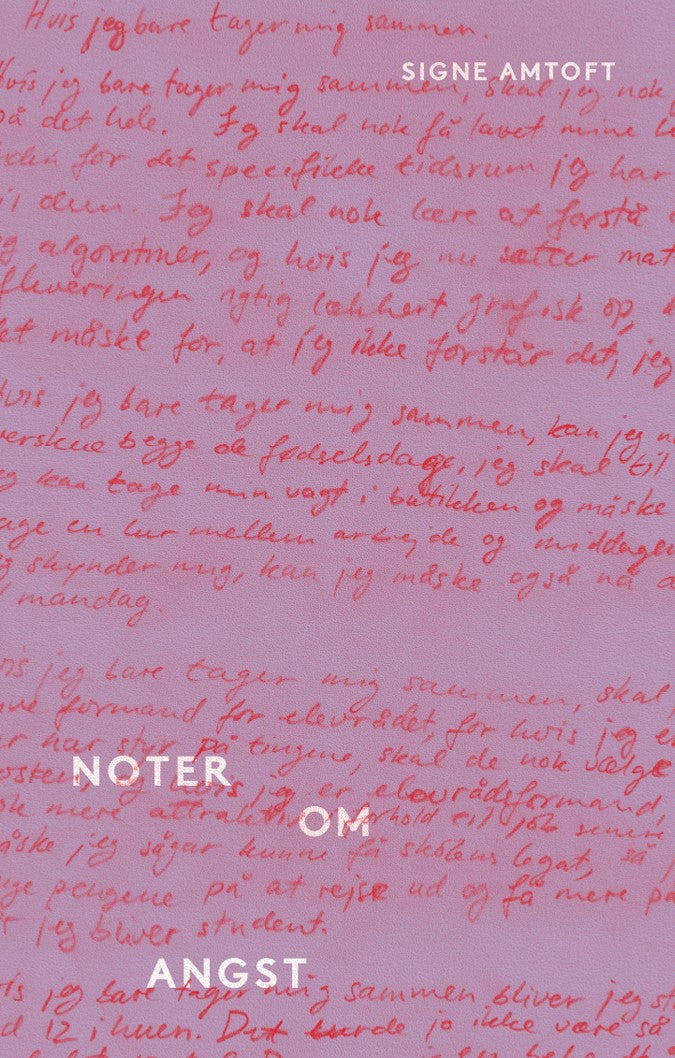 Hvis jeg bare tager mig sammen.
SIGNE AMTOFT
Hvis jeg bare tager mig sammen, skal jeg nok
på det hele. Jeg skal nok få lavet mine
inden for det specifikke tidsrum jeg har
til dem. Jeg skal nok lære at forstå
og algoritmer, og hvis jeg nu sætter mat
fleveringen rigtig lækkert grafisk op,
det måske for, at jeg ikke forstår det, jeg
Hvis jeg bare tager mig sammen, kan jeg n
verskue begge de fødselsdage, jeg skal til
eg kan tage min vagt i butikken og måske
age en lur mellem arbejde og middagen
eg skynder mig, kan jeg måske også nå
mandag.
vis jeg bare tager mig sammen, skal
ive formand for elevrådet, for hvis jeg
er har styr på tingene, skal de nok vælge
NOTER
og hvis jeg er elevrådsformand,
OM
ok mere attraktiv i forhold til job senere
åske jeg sågar kunne få skolens legat, så j
uge pengene på at rejse ud og få mere på
r jeg bliver student.
ANGST
vis jeg bare tager mig sammen bliver jeg st
d 12 i huen. Det burde jo ikke være så